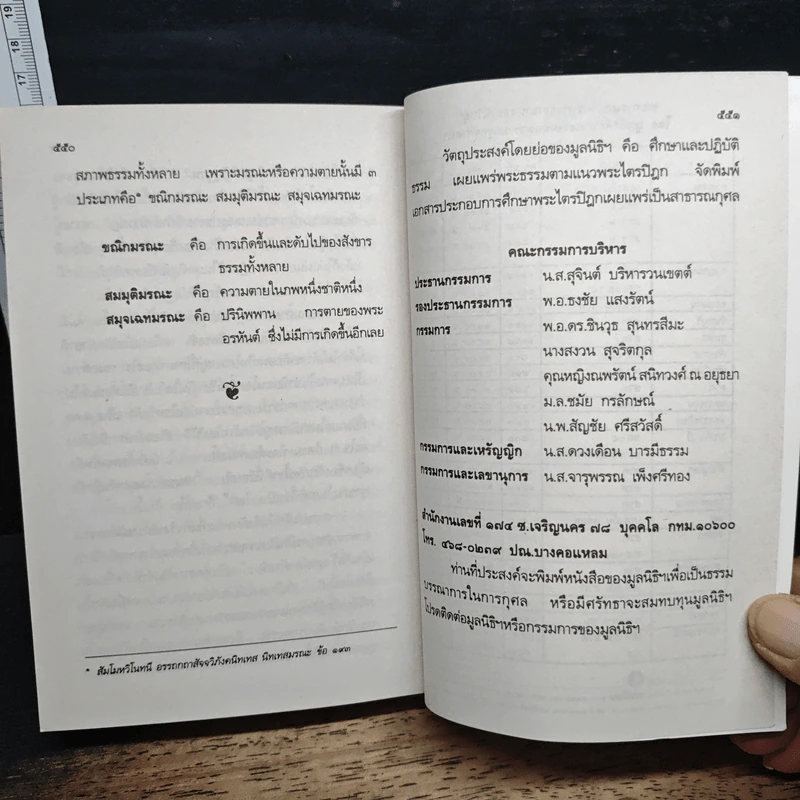 ๕๕๐
สภาพธรรมทั้งหลาย เพราะมรณะหรือความตายนั้นมี ๓
ประเภทคือ* ขณิกมรณะ สมมุติมรณะ สมุจเฉทมรณะ
ขณิกมรณะ คือ การเกิดขึ้นและดับไปของสังขาร
ธรรมทั้งหลาย
สมมุติมรณะ คือ ความตายในภพหนึ่งชาติหนึ่ง
สมุจเฉทมรณะ คือ ปรินิพพาน การตายของพระ
อรหันต์ ซึ่งไม่มีการเกิดขึ้นอีกเลย
* สัมโมหวิโนทนี อรรถกถาสัจจวิภังคนิทเทส นิทเทสมรณะ ข้อ ๑๙๓
๕๕๑
วัตถุประสงค์โดยย่อของมูลนิธิฯ คือ ศึกษาและปฏิบัติ
ธรรม เผยแพร่พระธรรมตามแนวพระไตรปิฎก จัดพิมพ์
เอกสารประกอบการศึกษาพระไตรปิฎกเผยแพร่เป็นสาธารณกุศล
คณะกรรมการบริหาร
ประธานกรรมการ น.ส.สุจินต์ บริหารวนเขตต์
รองประธานกรรมการ พ.อ.ธงชัย แสงรัตน์
กรรมการ พ.อ.ดร.ชินวุธ สุนทรสีมะ
นางสงวน สุจริตกุล
คุณหญิงณพรัตน์ สนิทวงศ์ ณ อยุธยา
ม.ล.ชมัย กรลักษณ์
น.พ.สัญชัย ศรีสวัสดิ์
กรรมการและเหรัญญิก น.ส.ดวงเดือน บารมีธรรม
กรรมการและเลขานุการ น.ส.จารุพรรณ เพ็งศรีทอง
สำนักงานเลขที่ ๑๗๔ ซ.เจริญนคร ๗๘ บุคคโล กทม.๑๐๖๐๐
โทร. ๔๖๘-๐๒๓๙ ปณ.บางคอแหลม
ท่านที่ประสงค์จะพิมพ์หนังสือของมูลนิธิฯเพื่อเป็นธรรม
บรรณาการในการกุศล หรือมีศรัทธาจะสมทบทุนมูลนิธิฯ
โปรดติดต่อมูลนิธิฯหรือกรรมการของมูลนิธิฯ
17
18
19